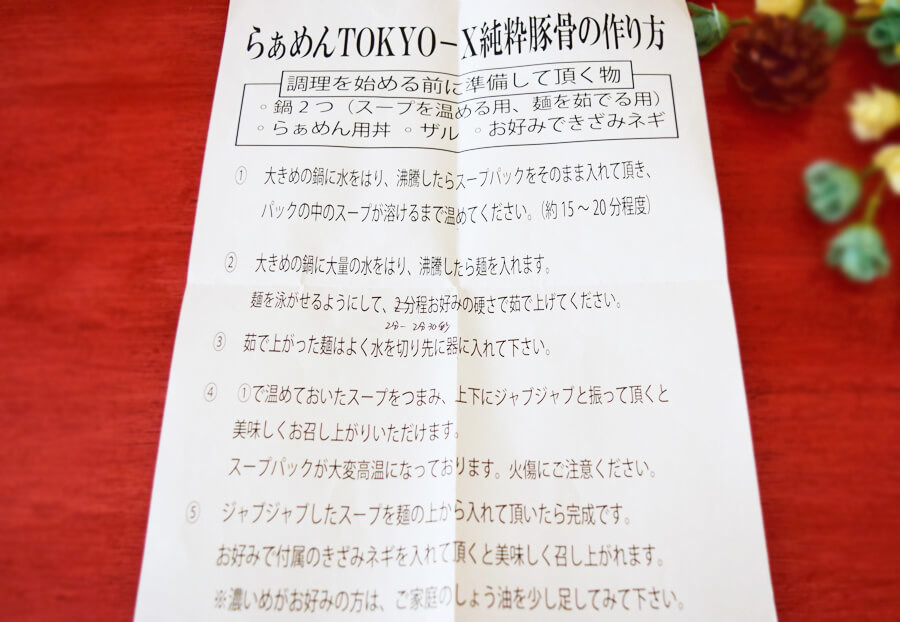 らぁめんTOKYO－X純粋豚骨の作り方
調理を始める前に準備して頂く物
◦鍋２つ（スープを温める用、麺を茹でる用）
◦らぁめん用丼 ◦ザル ◦お好みできざみネギ
① 大きめの鍋に水をはり、沸騰したらスープパックをそのまま入れて頂き、
パックの中のスープが溶けるまで温めてください。（約15～20分程度）
② 大きめの鍋に大量の水をはり、沸騰したら麺を入れます。
麺を泳がせるようにして、2分程お好みの硬さで茹で上げてください。
2分－2分30秒
③ 茹で上がった麺はよく水を切り先に器に入れて下さい。
④ ①で温めておいたスープをつまみ、上下にジャブジャブと振って頂くと
美味しくお召し上がりいただけます。
スープパックが大変高温になっております。火傷にご注意ください。
⑤ ジャブジャブしたスープを麺の上から入れて頂いたら完成です。
お好みで付属のきざみネギを入れて頂くと美味しく召し上がれます。
※濃いめがお好みの方は、ご家庭のしょう油を少し足してみて下さい。